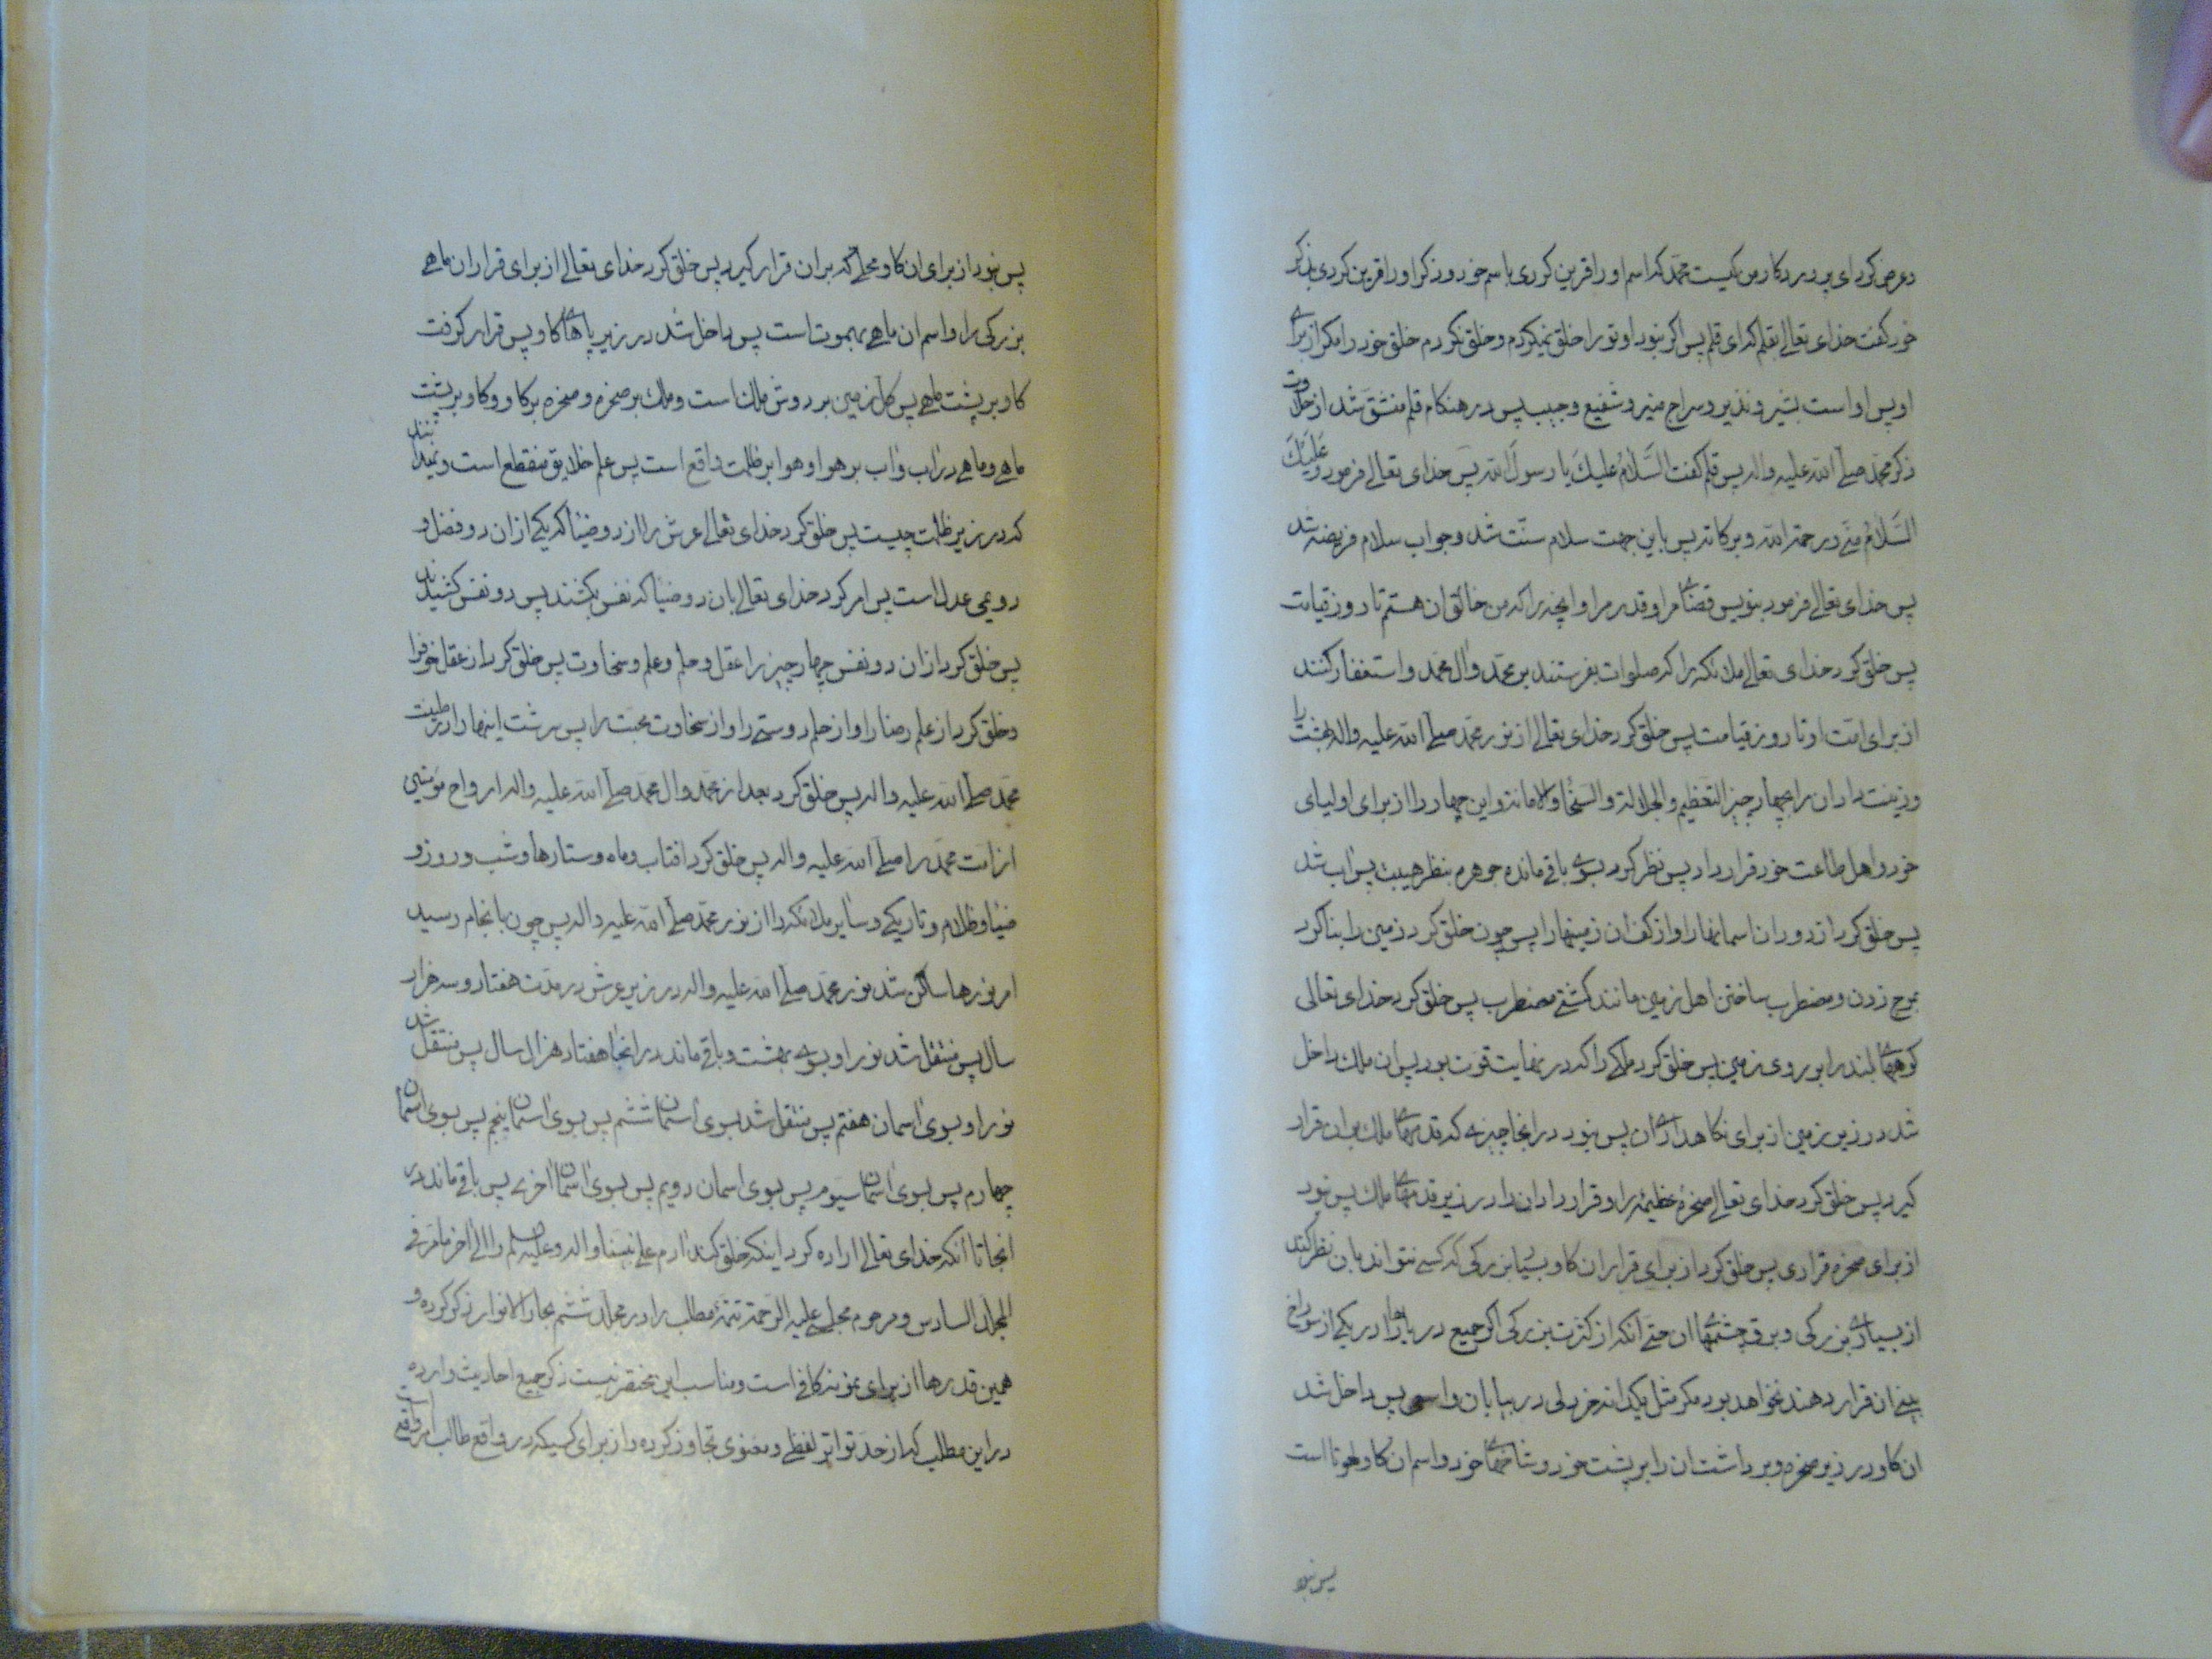 و عرض کرد ای پروردکار من کیست محمد که اسم او را قرین کردی باسم خود و ذکر او را قرین کردی بذکر
خود کفت خدای تعالی بقلم که ای قلم پس اکر نبود او تو را خلق نمیکردم و خلق نکردم خلق خود را مکر از برای
او پس او است بشیر و نذیر و سراج منیر و شفیع و حبیب پس در هنکام قلم منشق شد از حلاوت
ذکر محمد صلی الله علیه واله پس قلم کفت السَّلامُ علیكَ یا رسولَ الله پس خدای تعالی فرمود وَعَلَیْكَ
السَّلامُ منّی و رحمة الله و برکاته پس باین جهت سلام سنّت شد و جواب سلام فریضه شد
پس خدای تعالی فرمود بنویس قضای مرا و قدر مرا و انچه را که من خالق ان هستم تا روز قیامت
پس خلق کرد خدای تعالی ملائکه را که صلوات بفرستند بر محمّد و ال محمد و استغفار کنند
از برای امّت او تا روز قیامت پس خلق کرد خدای تعالی از نور محمد صلی الله علیه واله بهشت را
و زینت داد ان را بچهار چیز التعظیم و الجلالة و السخاء و الامانة و این چهار را از برای اولیای
خود و اهل طاعت خود قرار داد پس نظر کرد بسوی باقی مانده جوهره بنظر هیبت پس اب شد
پس خلق کرد از دود ان اسمانها را و از کف ان زمینها را پس چون خلق کرد زمین را بنا کرد
بموج زدن و مضطرب ساختن اهل زمین مانند کشتی مضطرب پس خلق کرد خدای تعالی
کوههای بلند را بر روی زمین پس خلق کرد ملکی را که در نهایت قوت بود پس ان ملك داخل
شد در زیر زمین از برای نکاهداری ان پس نبود در انجا چیزی که قدمهای ملك بران قرار
کیرد پس خلق کرد خدای تعالی صخرهٔ عظیمهٔ را و قرار داد ان را در زیر قدمهای ملك پس نبود
از برای صخره قراری پس خلق کرد از برای قرار ان کاو بسیار بزرکی که کسی نتواند بان نظر کند
از بسیاری بزرکی و برق چشمهای ان حتی انکه از کثرت بزرکی اکر جمیع دریاها را در یکی از سوراخ
بینی ان قرار دهند نخواهد بود مکر مثل یکدانه خردلی در بیابان واسعی پس داخل شد
ان کاو در زیر صخره و برداشت ان را بر پشت خود و شاخهای خود و اسم ان کاو لهوتا است
پس نبود
پس نبود از برای ان کاو محلی که بران قرار کیرد پس خلق کرد خدای تعالی از برای قرار ان ماهی
بزرکی را و اسم ان ماهی بهموت است پس داخل شد در زیر پاهای کاو پس قرار کرفت
کاو بر پشت ماهی پس کل زمین بر دوش ملك است و ملك بر صخره و صخره بر کاو و کاو بر پشت
ماهی و ماهی در اب و اب بر هوا و هوا بر ظلمت واقع است پس علم خلایق منقطع است و نمیدانند
که در زیر ظلمت چیست پس خلق کرد خدای تعالی عرش را از دو ضیا که یکی از ان دو فضل و
دویمی عدل است پس امر کرد خدای تعالی بان دو ضیا که نفس بکشند پس دو نفس کشیدند
پس خلق کرد از ان دو نفس چهار چیز را عقل و حلم و علم و سخاوت پس خلق کرد از عقل خوف را
و خلق کرد از علم رضا را و از حلم دوستی را و از سخاوت محبت را پس سرشت اینها را در طینت
محمّد صلی الله علیه واله پس خلق کرد بعد از محمّد و ال محمّد صلی الله علیه واله ارواح مؤمنین
از امّت محمّد را صلی الله علیه واله پس خلق کرد افتاب و ماه و ستارها و شب و روز و
ضیا و ظلام و تاریکی و سایر ملائکه را از نور محمّد صلی الله علیه واله پس چون بانجام رسید
امر نورها ساکن شد نور محمّد صلی الله علیه واله در زیر عرش در مدّت هفتاد و سه هزار
سال پس منتقل شد نور او بسوی بهشت و باقی ماند در انجا هفتاد هزار سال پس منتقل شد
نور او بسوی اسمان هفتم پس منتقل شد بسوی اسمان ششم پس بسوی اسمان پنجم پس بسوی اسمان
چهارم پس بسوی اسمان سیوم پس بسوی اسمان دویم پس بسوی اسمان اخری پس باقی ماند در
انجا تا انکه خدای تعالی اراده کرد اینکه خلق کند ادم علی نبینا واله وعلیه السلم را الی اخر ما مرّ فی
المجلد السادس و مرحوم مجلسی علیه الرحمة تتمّهٔ مطلب را در مجلّد ششم بحار الانوار ذکر کرده و
همین قدرها از برای نمونه کافی است و مناسب این مختصر نیست ذکر جمیع احادیث وارده
در این مطلب که از حدّ تواتر لفظی و معنوی تجاوز کرده و از برای کسیکه در واقع طالب امر واقعی است